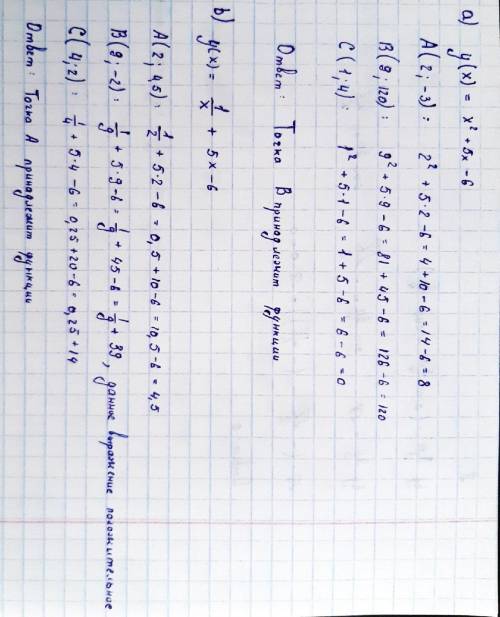 a) y(x) = x² + 5x - 6
A(2; -3): 2² + 5·2 - 6 = 4 + 10 - 6 = 14 - 6 = 8
B(9; 120): 9² + 5·9 - 6 = 81 + 45 - 6 = 126 - 6 = 120
C(1; 4): 1² + 5·1 - 6 = 1 + 5 - 6 = 6 - 6 = 0
Ответ: Точка B принадлежит функции
b) y(x) = 1/x + 5x - 6
A(2; 4,5): 1/2 + 5·2 - 6 = 0,5 + 10 - 6 = 10,5 - 6 = 4,5
B(9; -2): 1/9 + 5·9 - 6 = 1/9 + 45 - 6 = 1/9 + 39, данное выражение положительное
C(4; 2): 1/4 + 5·4 - 6 = 0,25 + 20 - 6 = 0,25 + 14
Ответ: Точка A принадлежит функции